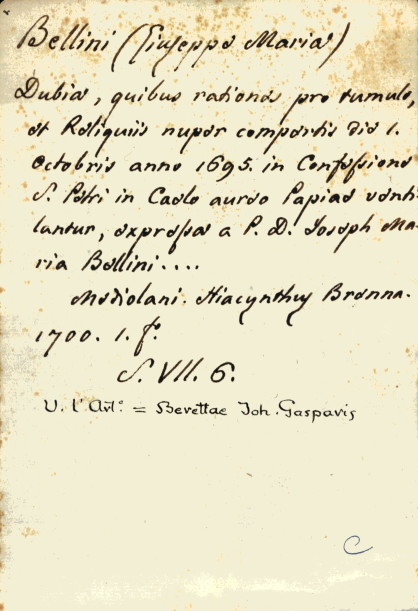 Bellini (Giuseppe Maria)
Dubia, quibus rationes pro tumulo,
et Reliquiis nuper compertis die 1.
Octobris anno 1695. in Confessione
S. Petri in Caelo aureo Papiae venti-
lantur, expressa a P. D. Joseph Ma-
ria Bellini....
Mediolani. Hiacynthus Brenna.
1700. 1. fo.
S. VII. 6.
V. l'Arto. = Berettae Joh. Gasparis
C